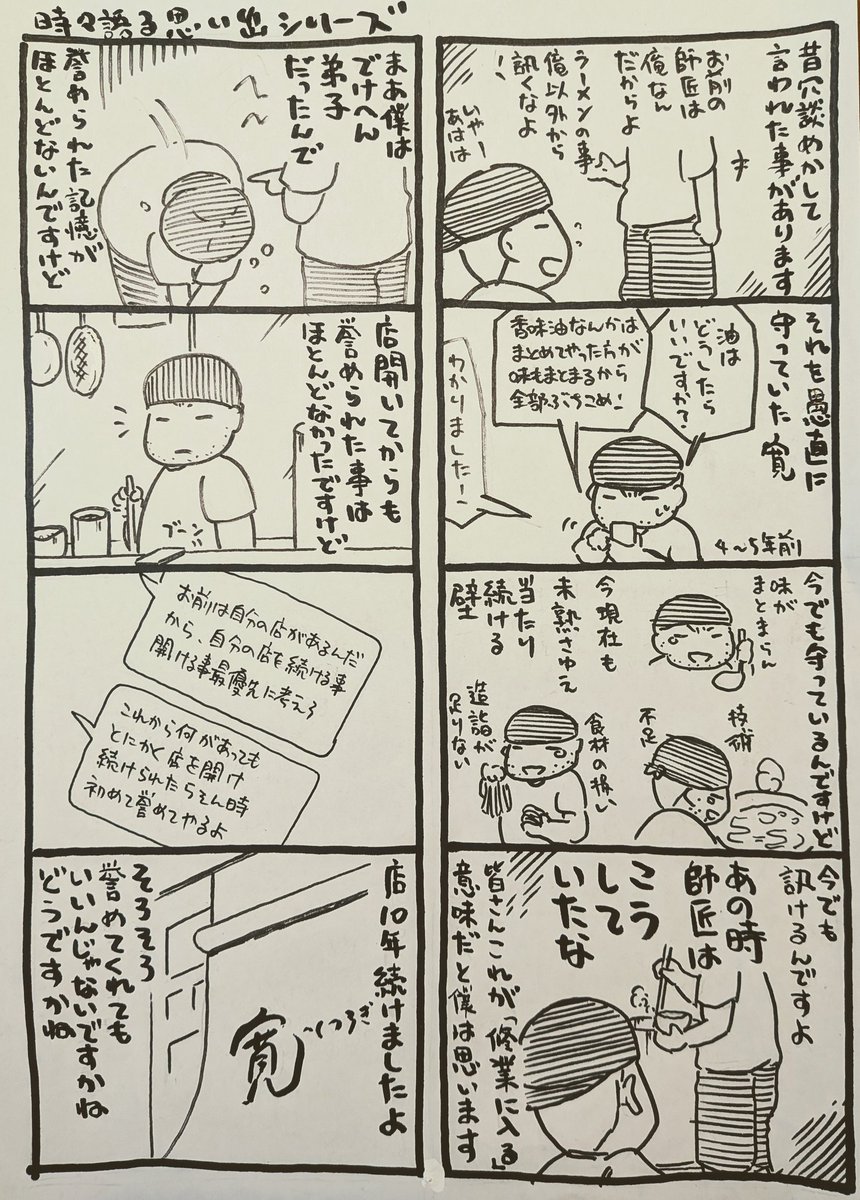 時々語る思い出シリーズ
昔冗談めかして
言われた事があります
お前の
師匠は
俺なん
だからよ
ラーメンの事
俺以外から
訊くなよ
！
いやー
あはは
それを愚直に
守っていた寛
油は
どうしたら
いいですか？
香味油なんかは
まとめてやった方が
味もまとまるから
全部ぶちこめ！
わかりました！
4〜5年前
今でも守っているんですけど
味が
まとまらん
今現社も
未熟さゆえ
当たり
続ける
壁
技術
不足
食材の扱い
造詣が
足りない
今でも
訊けるんですよ
あの時
師匠は
こう
して
いたな
皆さんこれが「修業に入る」
意味だと僕は思います
まあ僕は
でけへん
弟子
だったんで
誉められた記憶が
ほとんどないんですけど
店開いてからも
誉められた事は
ほとんどなかったですけど
ブーン
お前は自分の店があるんだ
から、自分の店を続ける事
開ける事最優先に考えろ
これから何があっても
とにかく店を開け
続けられたらそん時
初めて誉めてやるよ
店10年続けましたよ
寛
〜くつろぎ
そろそろ
誉めてくれても
いいんじゃないですかね
どうですかね